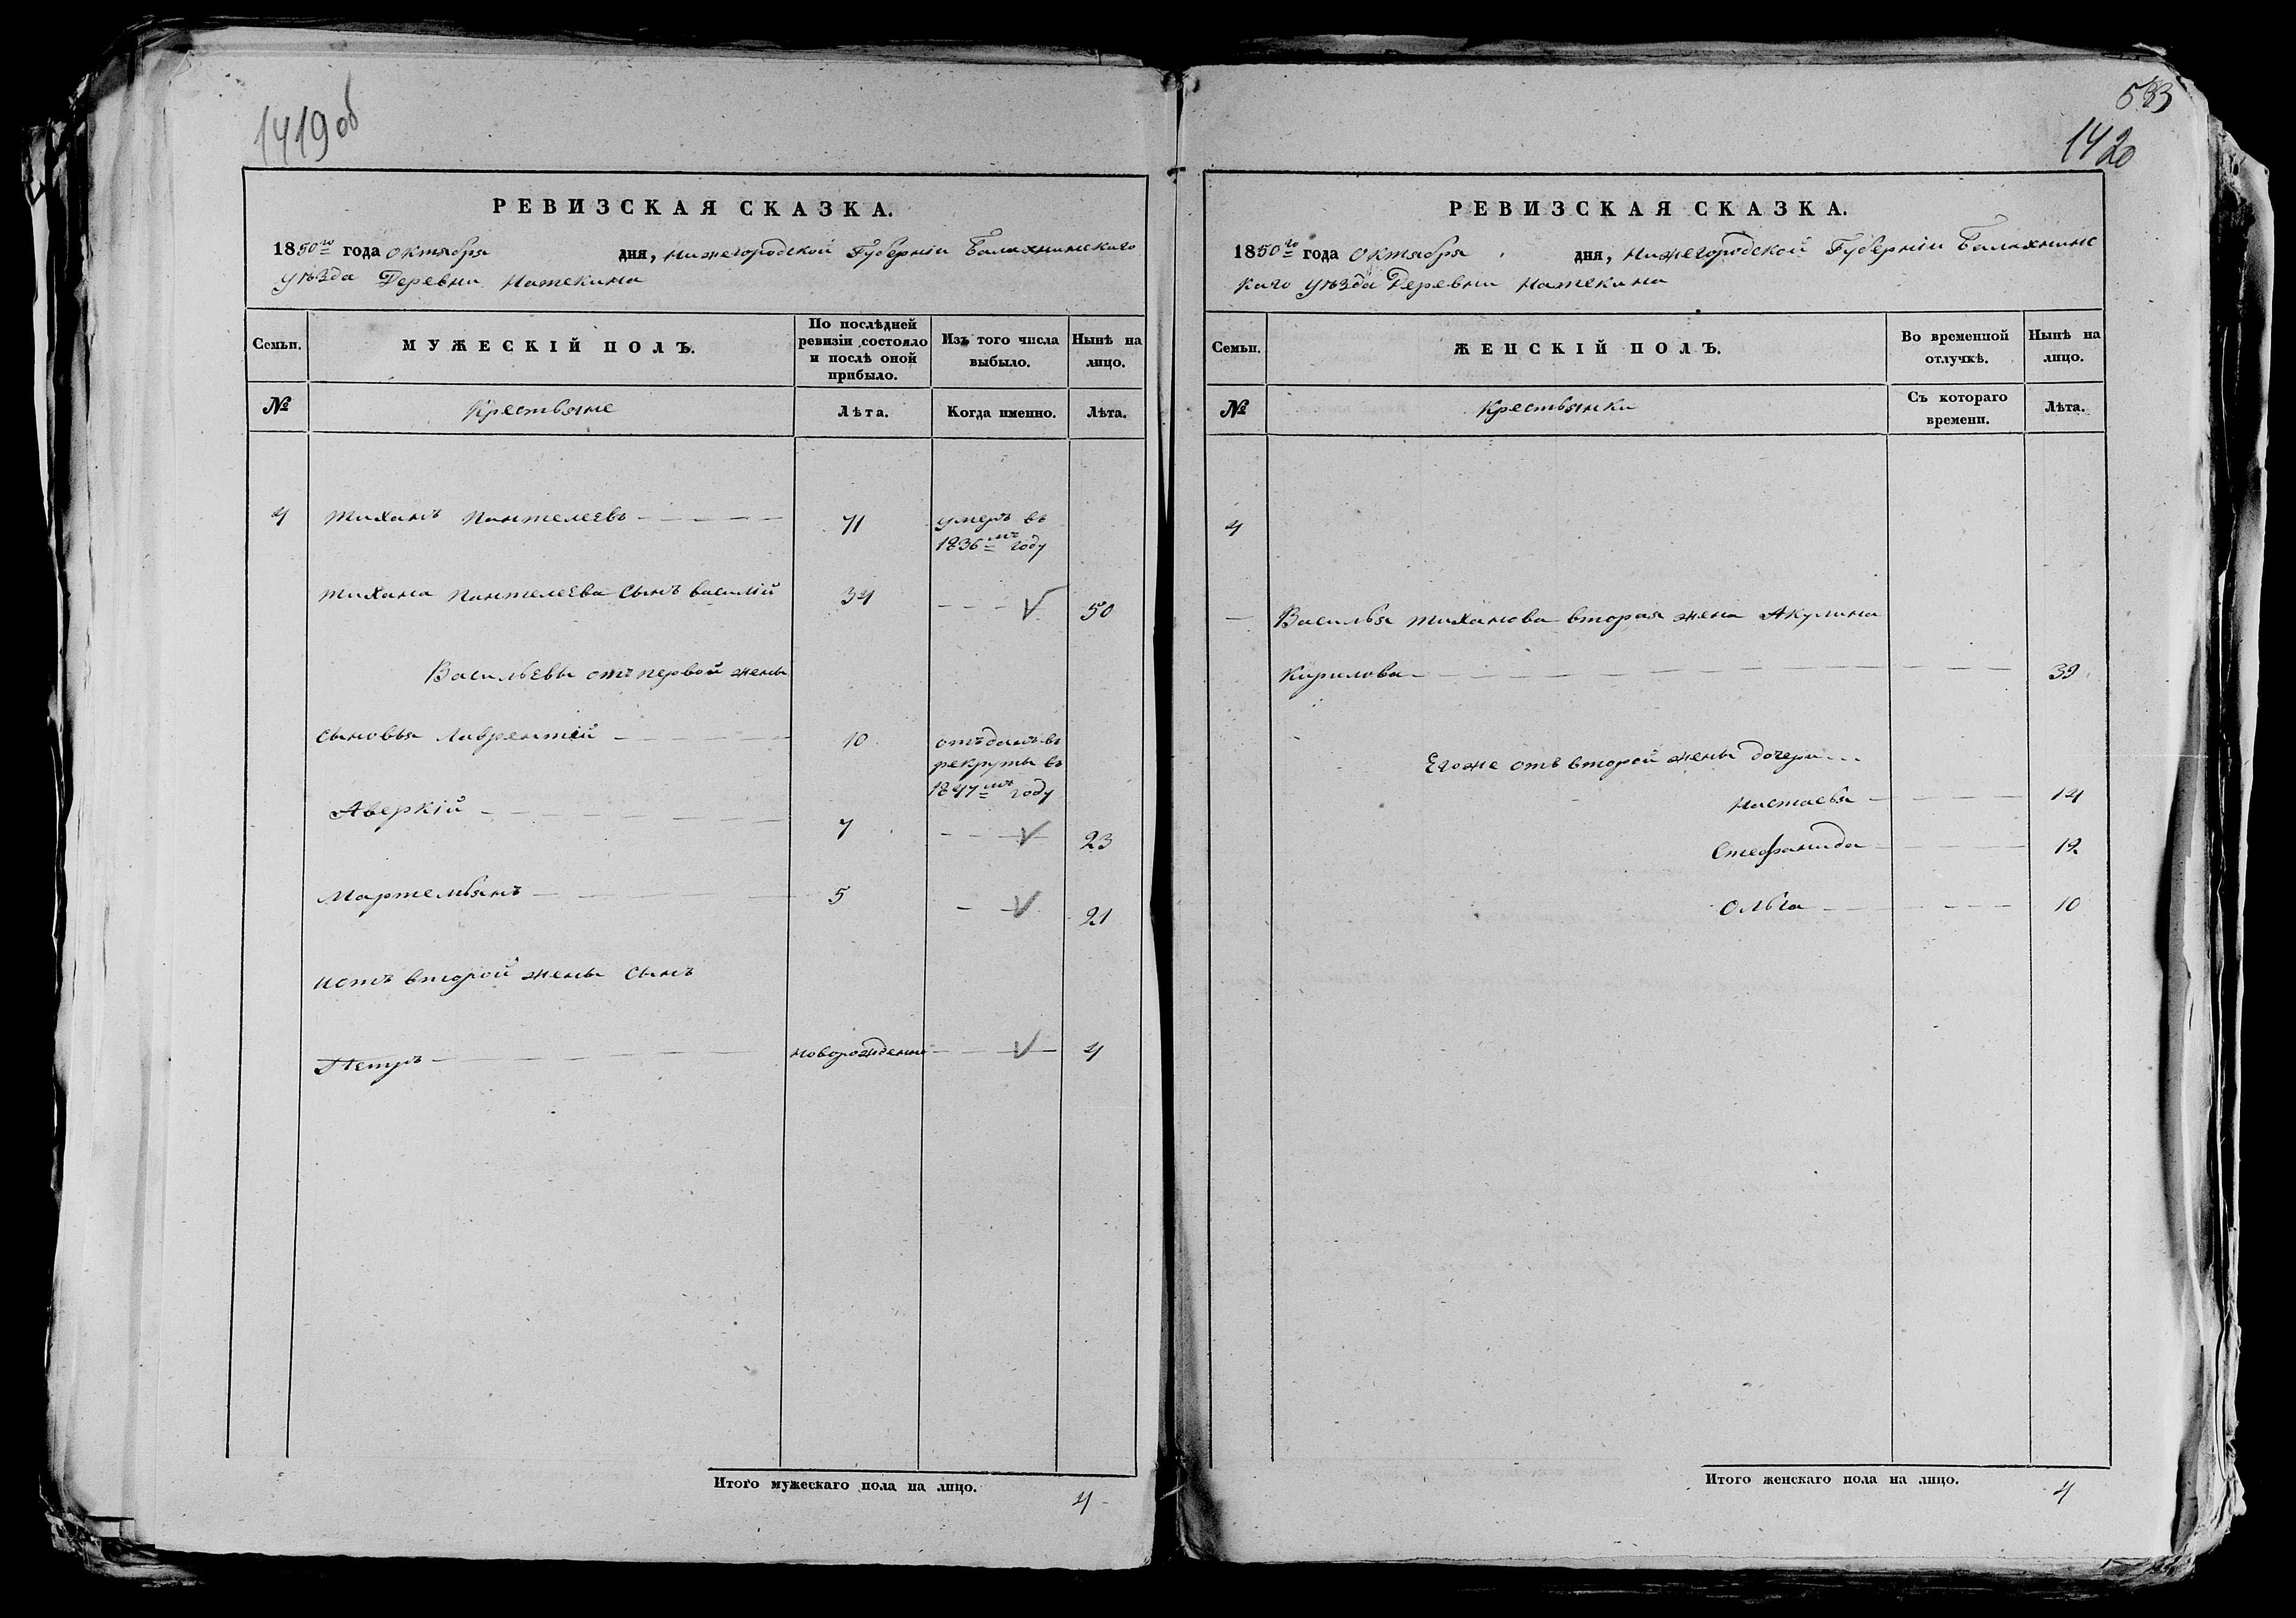 1419 об
РЕВИЗСКАЯ СКАЗКА.
1850го года Октября дня, Нижегородской Губерніи Балахнинскаго
уѣзда Деревни Матекина
Семьи.
МУЖЕСКІЙ ПОЛЪ.
По послѣдней ревизіи состояло и послѣ оной прибыло.
Изъ того числа выбыло.
Нынѣ на лицо.
№
Крестьяне
Лѣта.
Когда именно.
Лѣта.
4 Тиханъ Пантелеевъ 71 умеръ въ
1836мъ году
Тихана Пантелеева сынъ Василій 34 50
Васильевы отъ первой жены
сыновья Лаврентій 10 отъданъ въ
рекруты въ
1847мъ году
Аверкій 7 23
Мартемьянъ 5 21
и отъ второй жены сынъ
Петръ новорожденъ 4
Итого мужескаго пола на лицо.
4
583
1420
РЕВИЗСКАЯ СКАЗКА.
1850го года Октября дня, Нижегородской Губерніи Балахнинс
каго уѣзда Деревни Матекина
Семьи.
ЖЕНСКІЙ ПОЛЪ.
Во временной отлучкѣ.
Нынѣ на лицо.
№
Крестьянки
Съ котораго времени.
Лѣта.
4
Василья Тиханова вторая жена Акулина
Кирилова 39
Его же отъ второй жены дочери
Настасья 14
Стефанида 12
Ольга 10
Итого женскаго пола на лицо.
4